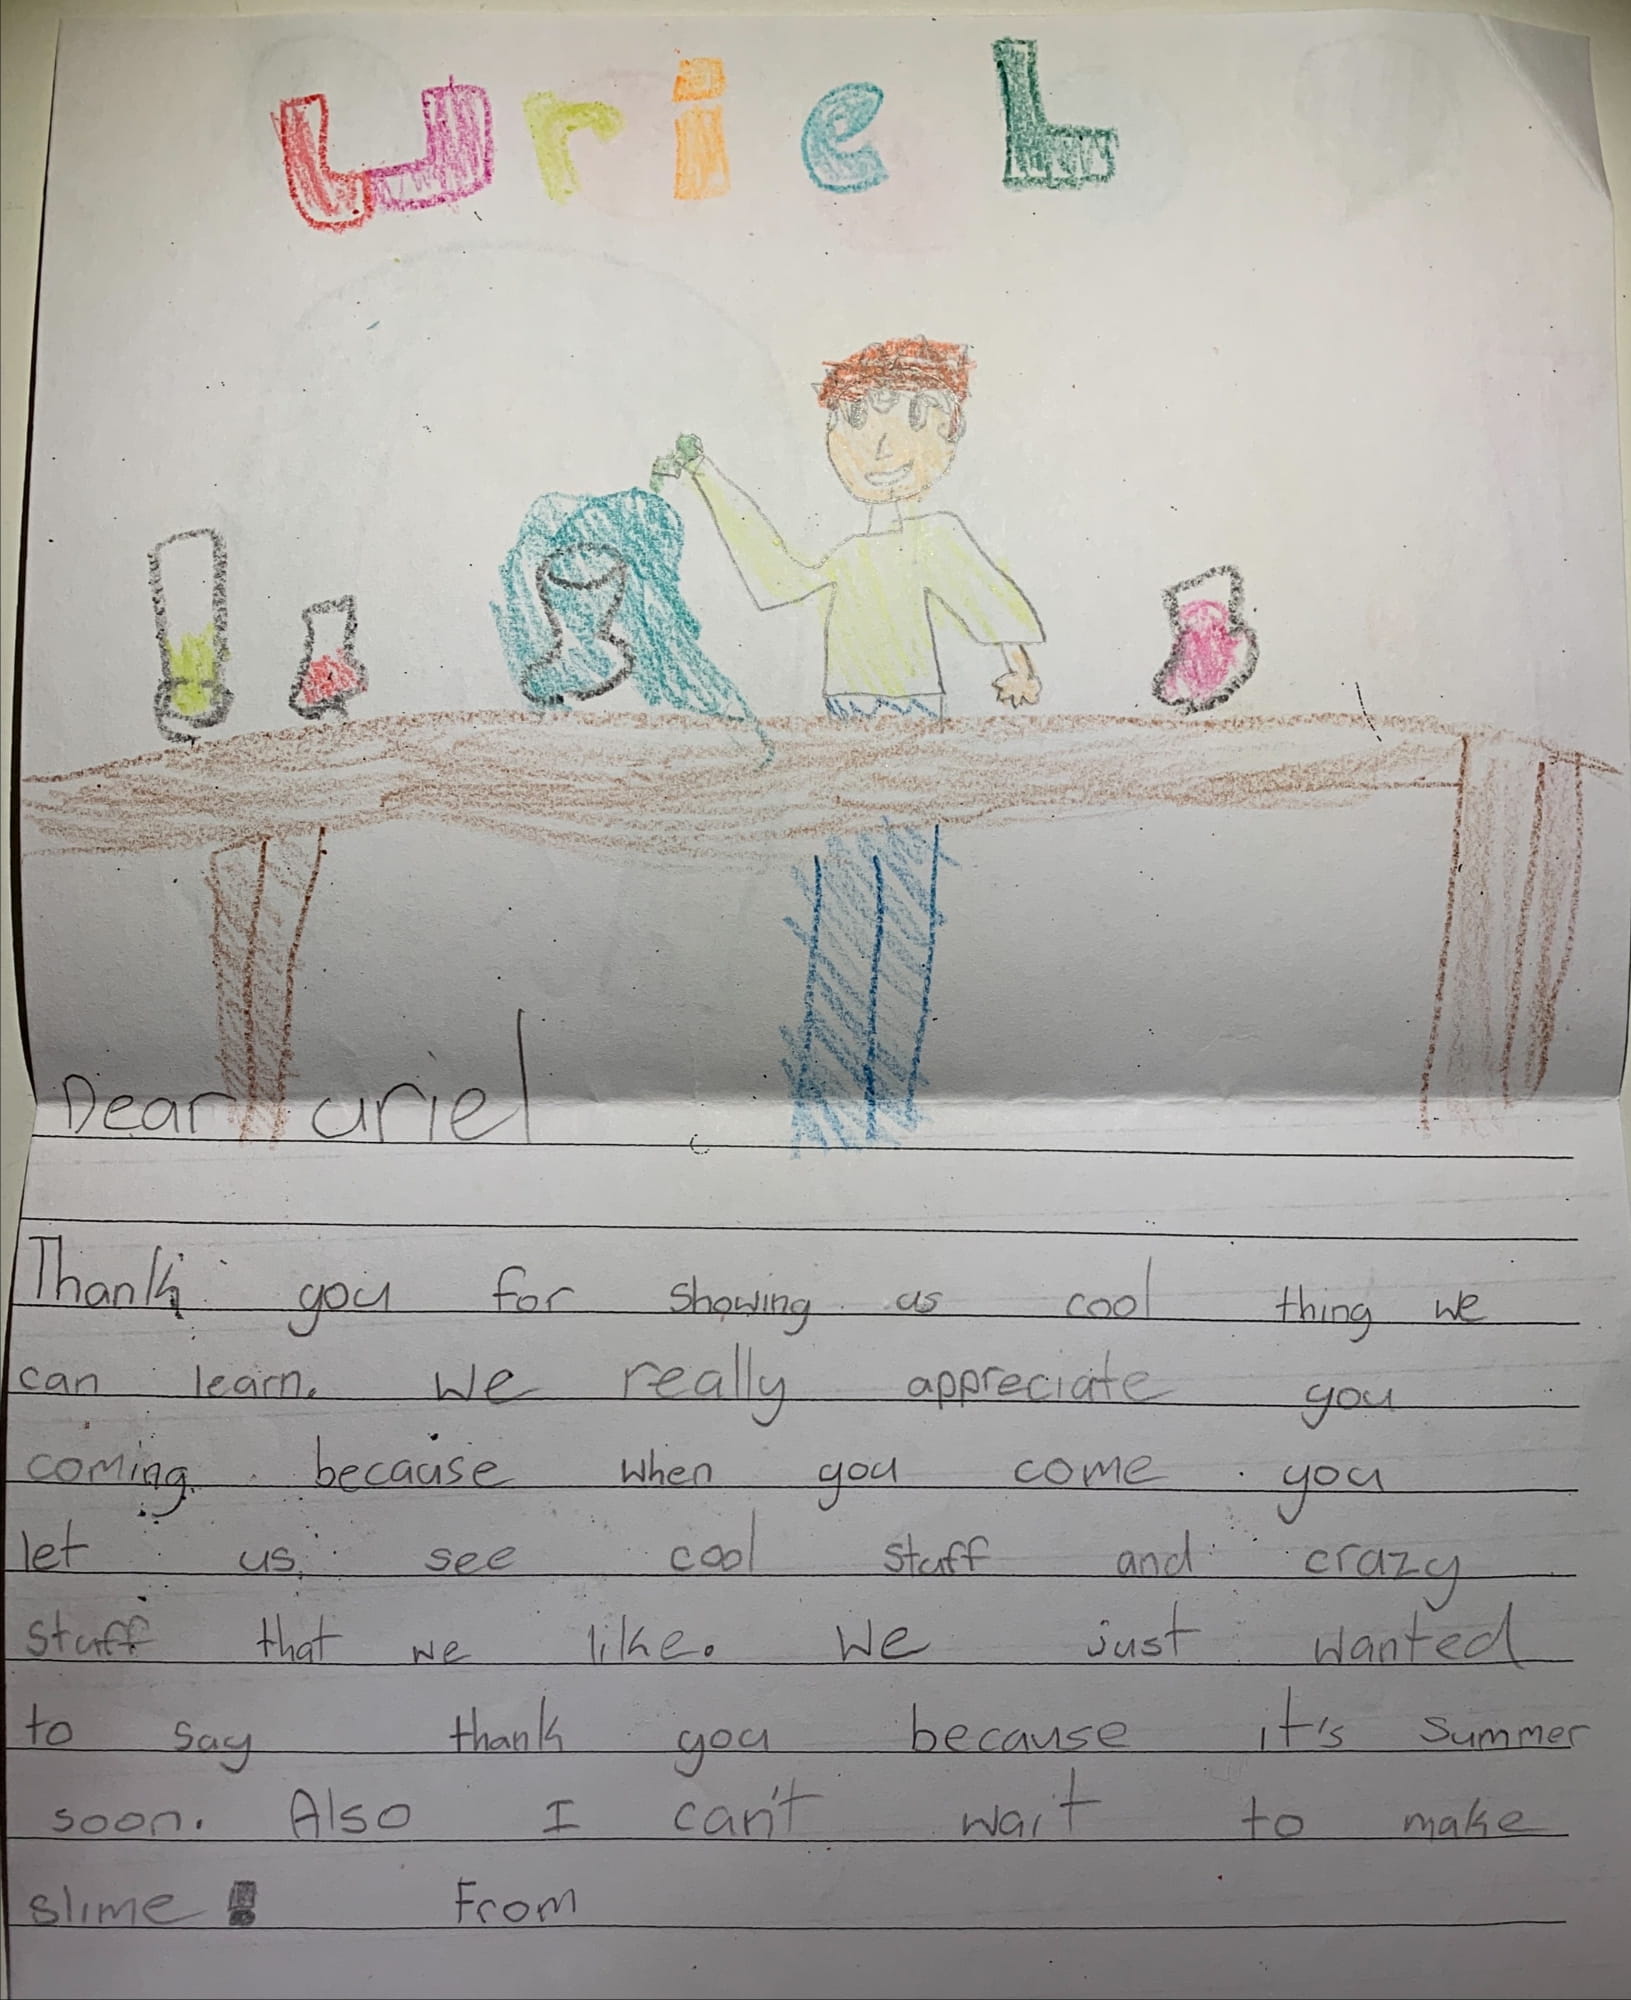 Uriel
Dear uriel
Thank you for showing us cool thing we
can learn. We really appreciate you
coming. because when you come you
let us see cool stuff and crazy
stuff that we like. We just wanted
to say thank you because it's summer
soon. Also I can't wait to make
slime! From